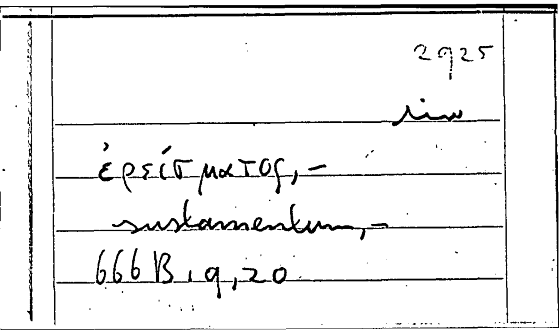 2925
ἐρείσματος,-
sustamentum,-
666 B, 9, 20